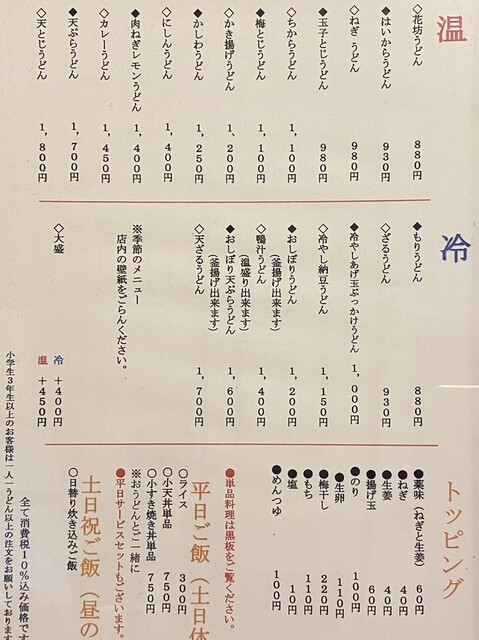 温
◇花坊うどん 880円
◆はいからうどん 930円
◇ねぎ うどん 980円
◆玉子とじうどん 980円
◇ちからうどん 1,100円
◆梅とじうどん 1,100円
◇かき揚げうどん 1,200円
◆かしわうどん 1,250円
◇にしんうどん 1,400円
◆肉ねぎレモンうどん 1,400円
◇カレーうどん 1,450円
◆天ぷらうどん 1,700円
◇天とじうどん 1,800円
冷
◆もりうどん 880円
◇ざるうどん 930円
◆冷やしあげ玉ぶっかけうどん 1,000円
◇冷やし納豆うどん 1,150円
◆おしぼりうどん 1,200円
(釜揚げ出来ます)
◇鴨汁うどん 1,400円
(温盛り出来ます)
◆おしぼり天ぷらうどん 1,600円
(釜揚げ出来ます)
◇天ざるうどん 1,700円
※季節のメニュー
店内の壁紙をごらんください。
◇大盛 冷 +400円
温 +450円
トッピング
●薬味(ねぎと生姜) 60円
●ねぎ 40円
●生姜 40円
●揚げ玉 60円
●のり 100円
●生卵 110円
●梅干し 220円
●もち 110円
●塩 10円
●めんつゆ 100円
●単品料理は黒板をご覧ください。
平日ご飯(土日休
○ライス 300円
○小天丼単品 750円
○小すき焼き丼単品 750円
※おうどんとご一緒に
●平日サービスセットもございます。
土日祝ご飯(昼の
○日替り炊き込みご飯
全て消費税10%込み価格です
小学生3年生以上のお客様は一人一うどん以上の注文をお願いしております